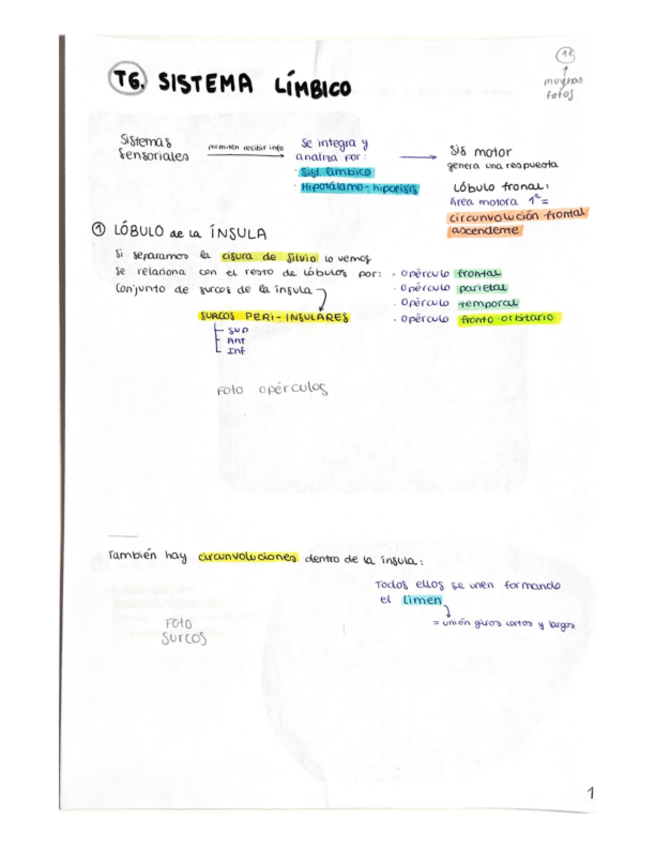 T6. SISTEMA LÍMBICO
11
muchas
fotos
Sistemas
sensoriales
permiten recibir info
se integra y
analiza por:
· Sist. límbico
· Hipotálamo-hipófisis
Sis motor
genera una respuesta
Lóbulo fronal:
Área motora 1ª =
circunvolución frontal
ascendente
① LÓBULO de la ÍNSULA
Si separamos la cisura de Silvio lo vemos
Se relaciona con el resto de lóbulos por:
· opérculo frontal
· opérculo parietal
· opérculo temporal
· opérculo fronto-orbitario
Conjunto de surcos de la ínsula
SURCOS PERI-INSULARES
Sup
Ant
Inf
Foto opérculos
También hay circunvoluciones dentro de la ínsula:
Todos ellos se unen formando
el limen
= unión giros cortos y largos
Foto
surcos
1